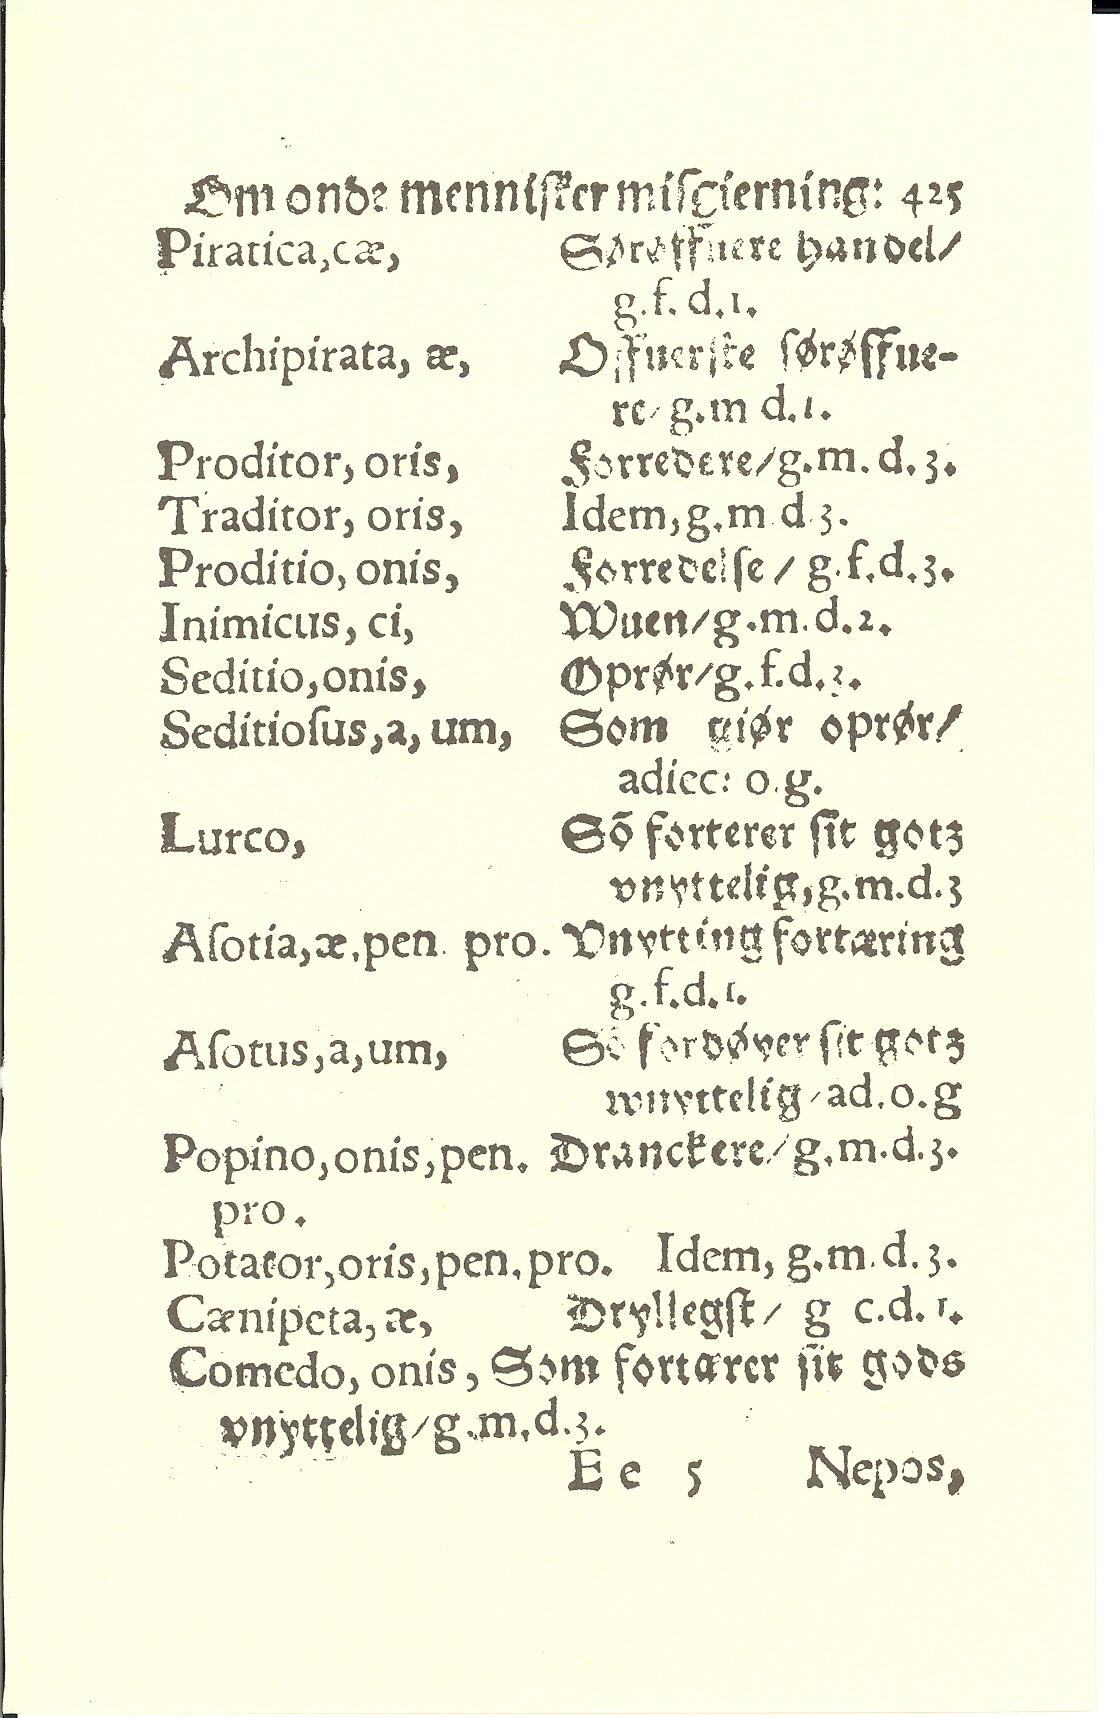 Om onde menniſker miſgierning: 425
Piratica,cæ, Sørøffuere handel/
g.f.d.1.
Archipirata, æ, Offuerſte ſørøffue-
re/ g.m d.1.
Proditor, oris, Forredere/g.m.d.3.
Traditor, oris, Idem,g.m d.3.
Proditio, onis, Forredelſe/ g.f.d.3.
Inimicus, ci, Wuen/g.m.d.2.
Seditio,onis, Oprør/g.f.d.3.
Seditioſus,a, um, Som giør oprør/
adiec: o.g.
Lurco, Sõ forterer ſit gotz
vnyttelig,g.m.d.3
Aſotia,æ,pen pro. Vnytting fortæring
g.f.d.1.
Aſotus,a,um, Sõ fordøyer ſit gotz
wnyttelig/ad.o.g
Popino,onis,pen. Dranckere/g.m.d.3.
pro.
Potator,oris,pen.pro. Idem, g.m.d.3.
Cænipeta,æ, Dryllegſt/ g c.d.1.
Comedo, onis, Som fortærer ſit gods
vnyttelig/g.m.d.3.
Ee 5 Nepos,